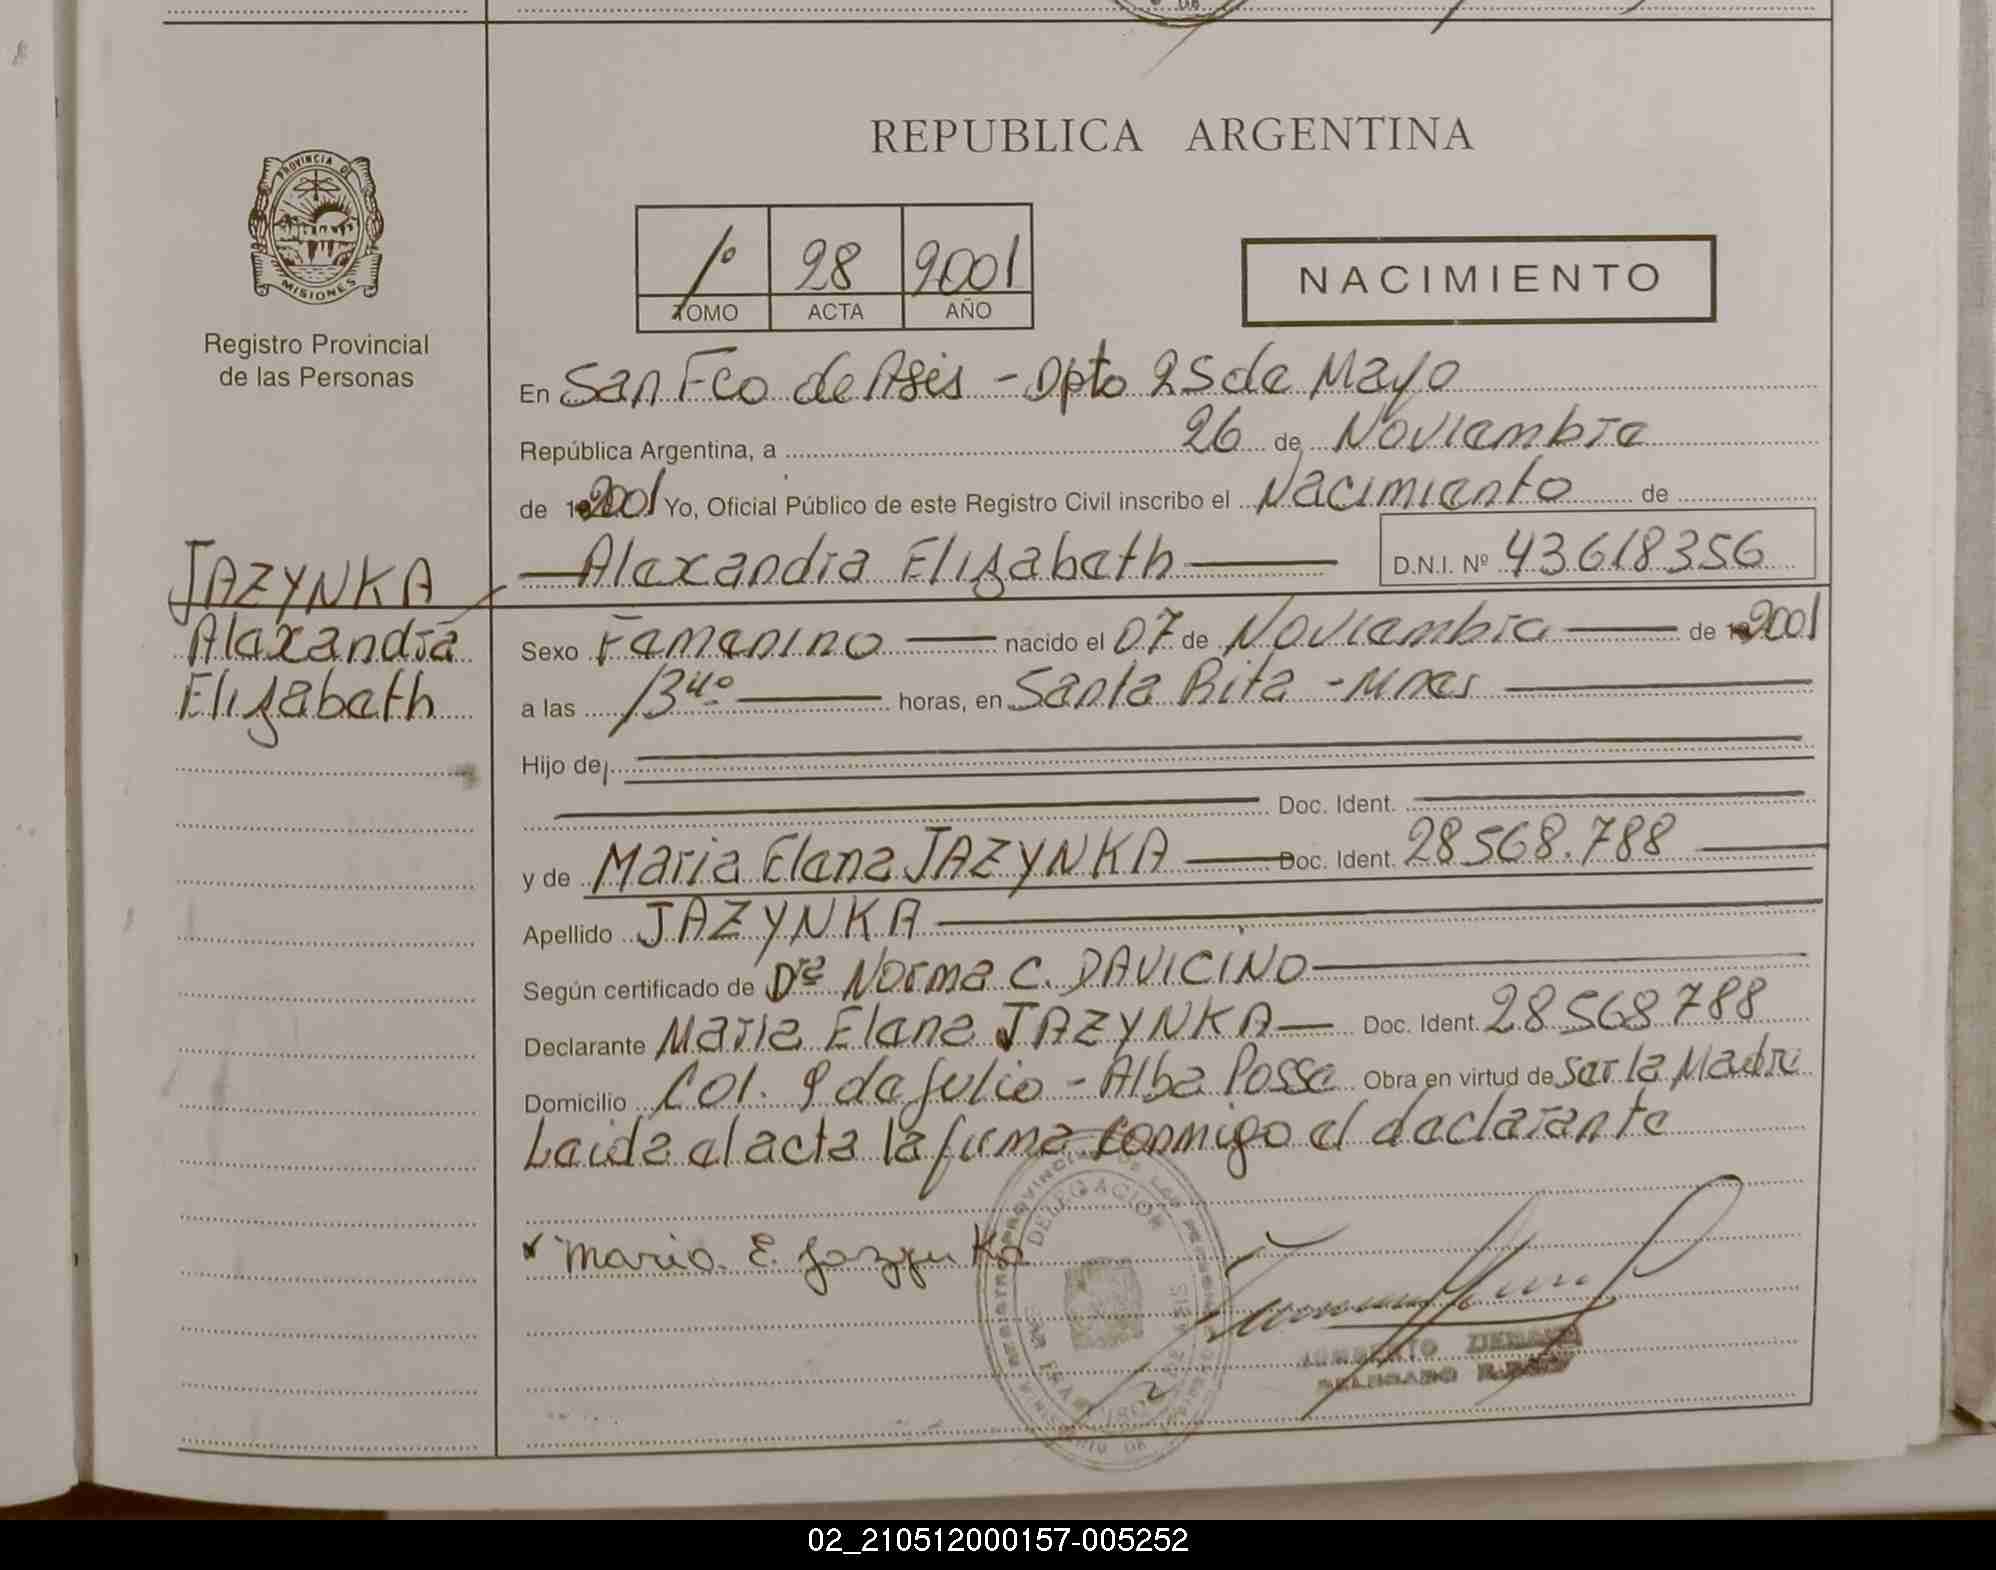 REPUBLICA ARGENTINA
PROVINCIA DE
MISIONES
Registro Provincial
de las Personas
1º 28 2001
TOMO ACTA AÑO
NACIMIENTO
En San Fco de Asis - Dpto 25 de Mayo
República Argentina, a 26 de Noviembre
de 2001 Yo, Oficial Público de este Registro Civil inscribo el Nacimiento de
Alexandra Elizabeth D.N.I. Nº 43618356
JAZYNKA
Alexandra
Elizabeth
Sexo Femenino nacido el 07 de Noviembre de 2001
a las 13 40 horas, en Santa Rita - Mnes
Hijo de
Doc. Ident.
y de Maria Elena JAZYNKA Doc. Ident. 28568.788
Apellido JAZYNKA
Según certificado de Drª Norma C. DAVICINO
Declarante Maria Elena JAZYNKA Doc. Ident. 28568788
Domicilio Col. 9 de Julio - Alba Posse Obra en virtud de Ser la Madre
Leida el acta la firma conmigo el declarante
Maria. E. Jazynka
DELEGACION
ZIEMANN
DELEGADO
02_210512000157-005252